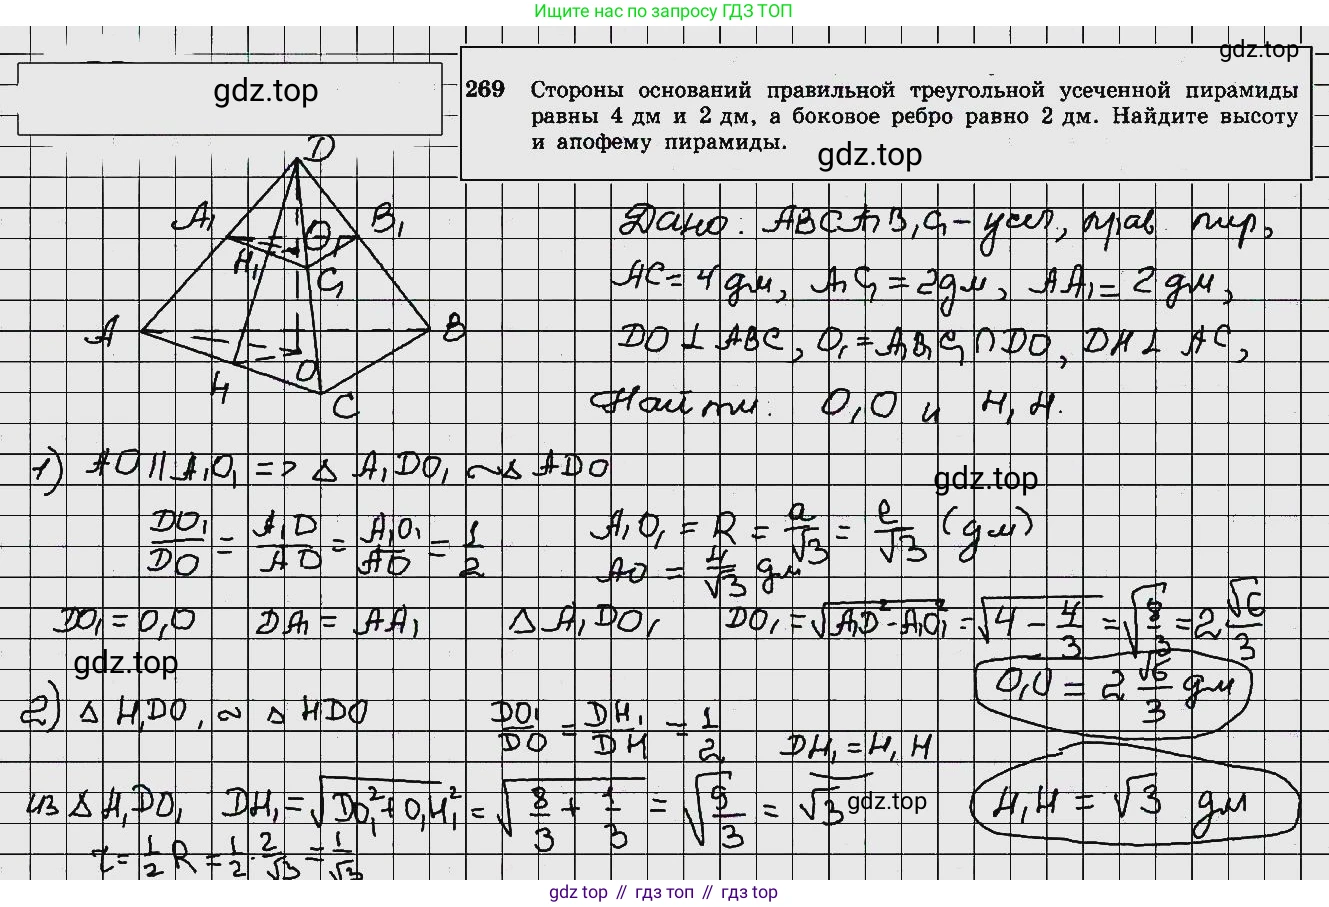 Ищите нас по запросу ГДЗ ТОП
gdz.top
gdz.top
269 Стороны оснований правильной треугольной усеченной пирамиды
равны 4 дм и 2 дм, а боковое ребро равно 2 дм. Найдите высоту
и апофему пирамиды.
gdz.top
D
A₁ O B₁
H₁ C₁
A B
O
H C
Дано: ABCA₁B₁C₁ - усеч, прав пир,
AC = 4 дм, A₁C₁ = 2 дм, AA₁ = 2 дм,
DO ⊥ ABC, O₁ = A₁B₁C₁ ∩ DO, DH ⊥ AC,
Найти: O₁O и H₁H.
1) AO || A₁O₁ => △ A₁DO₁ ~ △ ADO
gdz.top
DO₁/DO = A₁D/AD = A₁O₁/AO = 1/2
A₁O₁ = R = a/√3 = 2/√3 (дм)
AO = 4/√3 дм
DO₁ = O₁O DA₁ = AA₁ △ A₁DO₁ DO₁ = √(A₁D² - A₁O₁²) = √(4 - 4/3) = √(8/3) = 2√6/3
gdz.top
O₁O = 2√6/3 дм
2) △ H₁DO₁ ~ △ HDO DO₁/DO = DH₁/DH = 1/2 DH₁ = H₁H
из △ H₁DO₁ DH₁ = √(DO₁² + O₁H₁²) = √(8/3 + 1/3) = √(9/3) = √3
gdz.top
H₁H = √3 дм
r = 1/2 R = 1/2 · 2/√3 = 1/√3
gdz top // гдз топ // gdz top